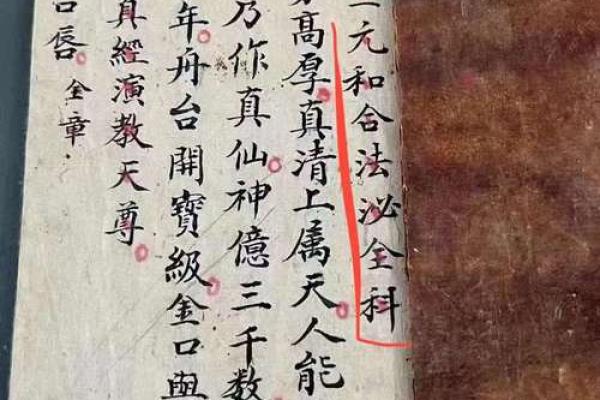 一元和合法泌全科
高厚真清上属天人能
乃作真仙神億三千数
年舟台開寶級金口與
真經演教天尊
唇金章